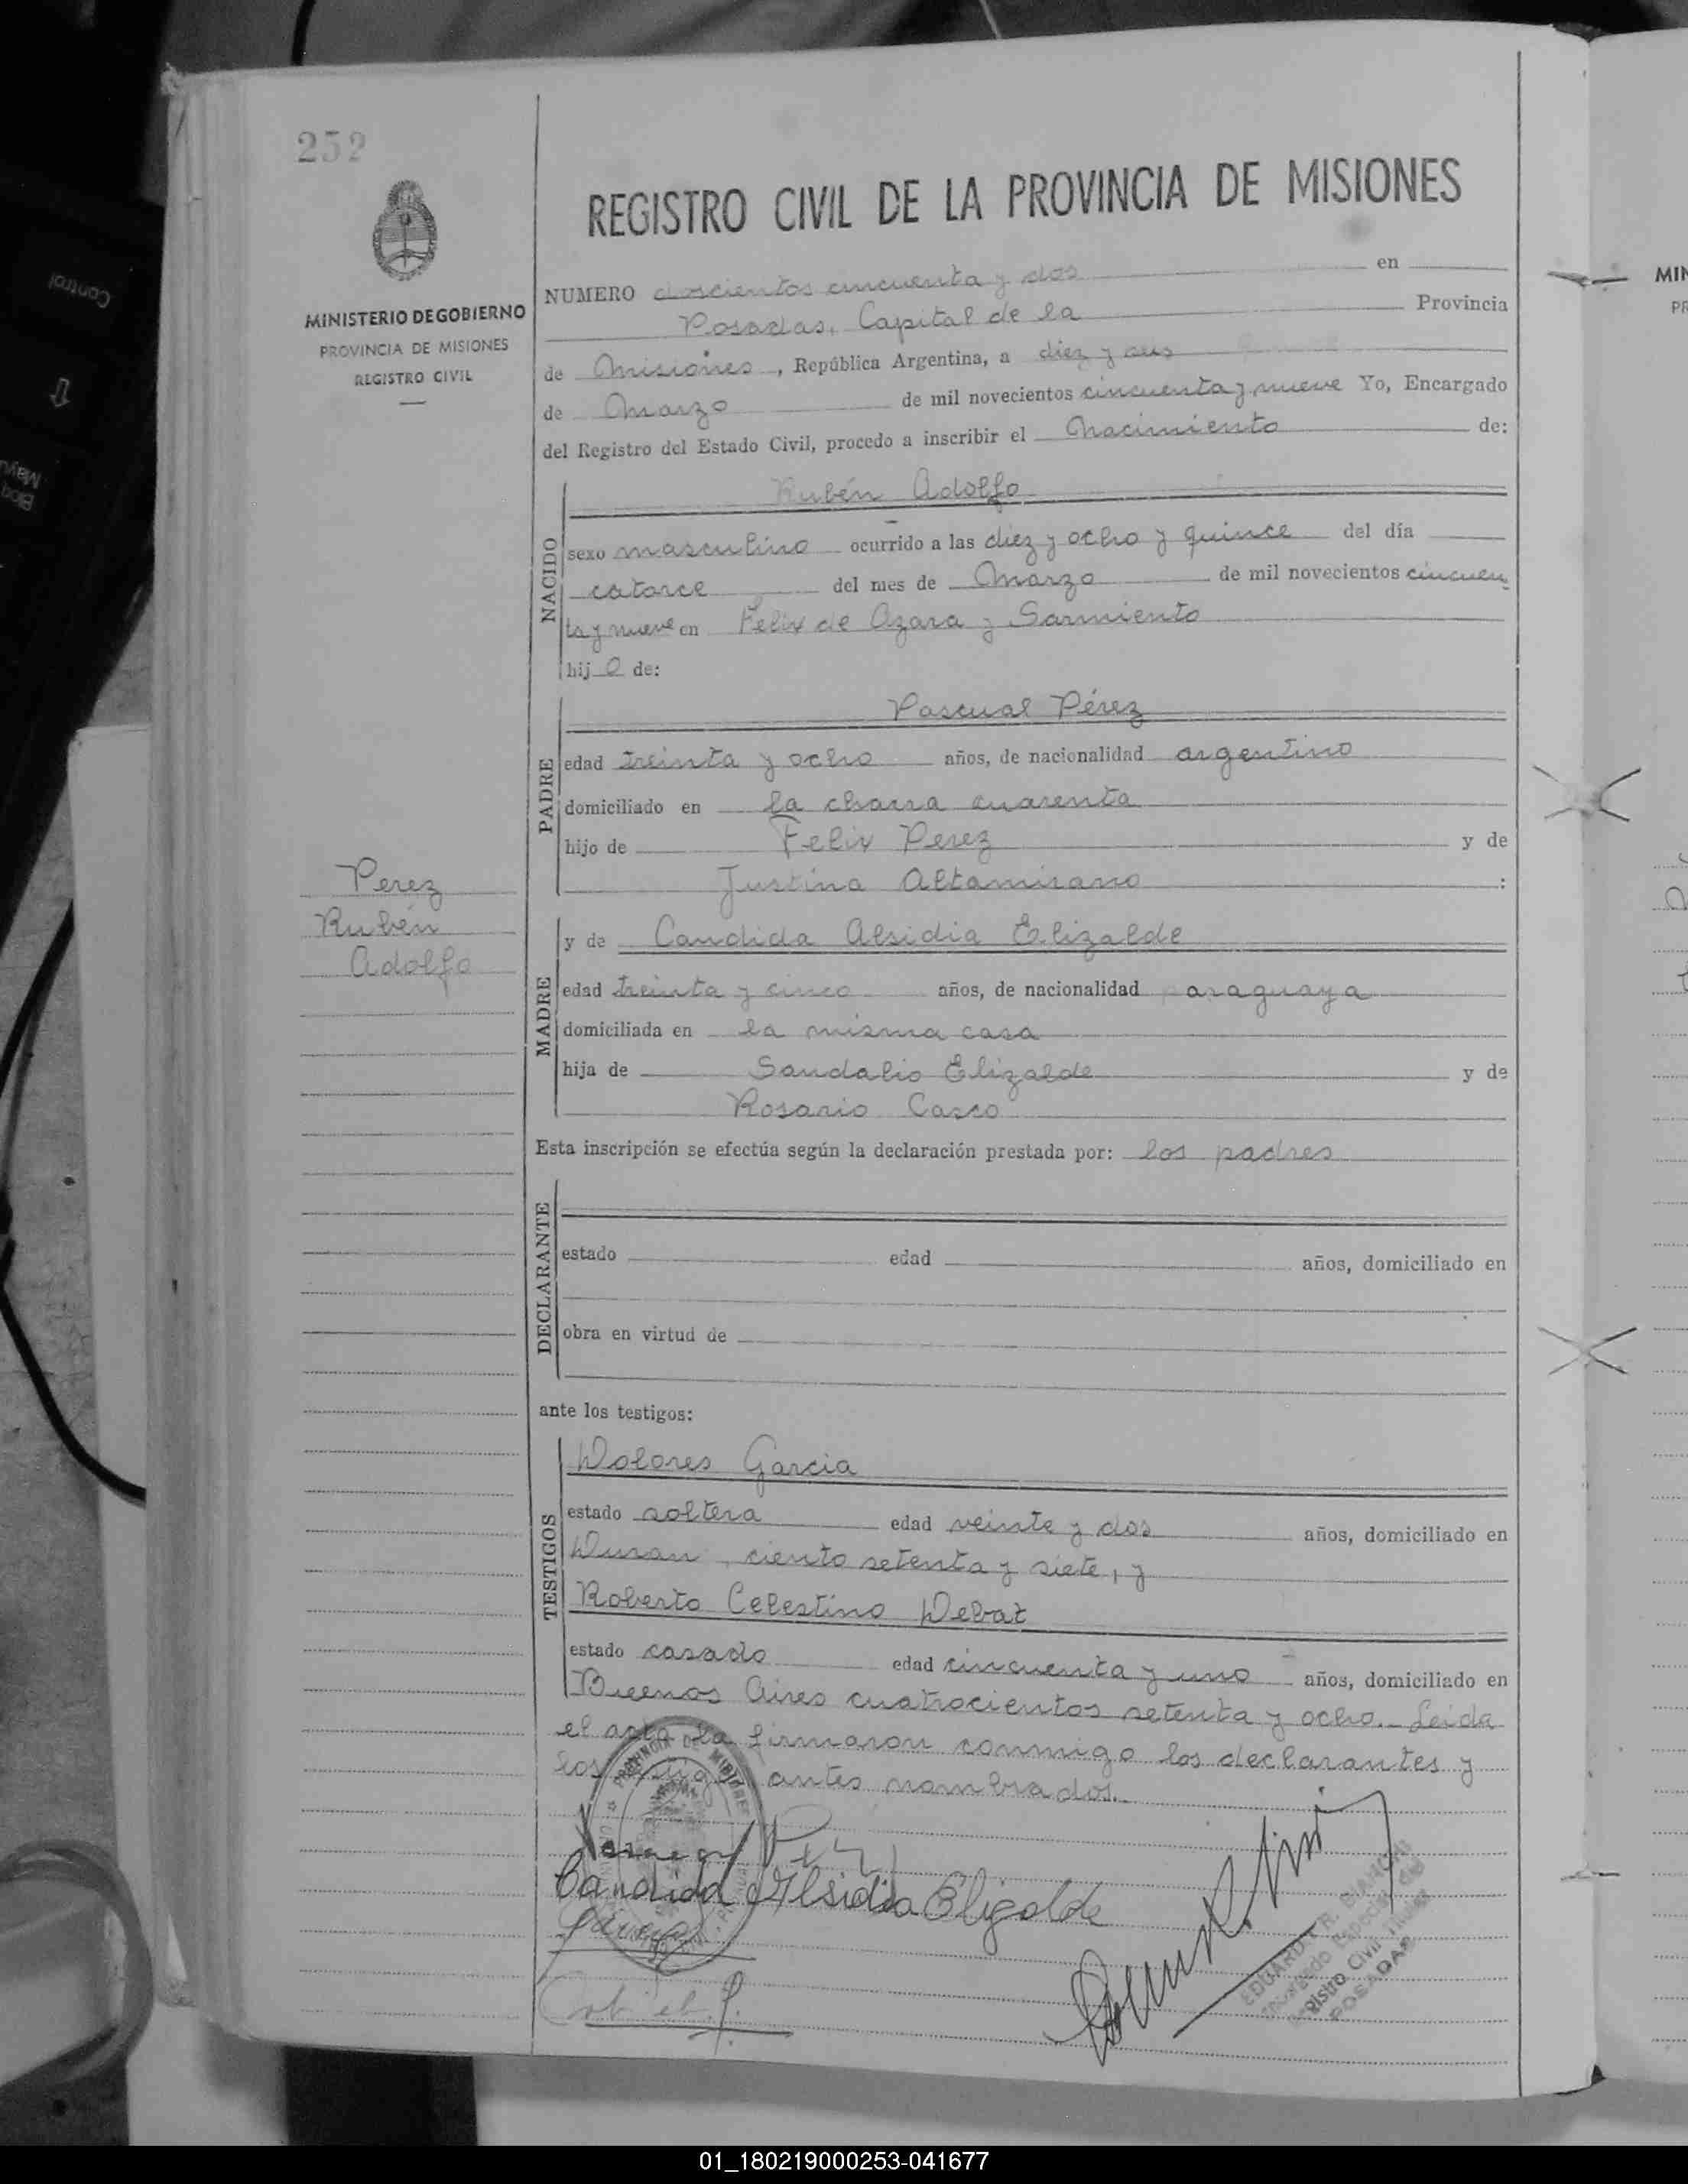 252
REGISTRO CIVIL DE LA PROVINCIA DE MISIONES
MINISTERIO DE GOBIERNO
PROVINCIA DE MISIONES
REGISTRO CIVIL
NUMERO doscientos cincuenta y dos en
Posadas, Capital de la Provincia
de Misiones, República Argentina, a diez y seis
de Marzo de mil novecientos cincuenta y nueve Yo, Encargado
del Registro del Estado Civil, procedo a inscribir el Nacimiento de:
NACIDO
Rubén Adolfo
sexo masculino ocurrido a las diez y ocho y quince del día
catorce del mes de Marzo de mil novecientos cincuen
ta y nueve en Felix de Azara y Sarmiento
hijo de:
PADRE
Pascual Pérez
edad treinta y ocho años, de nacionalidad argentino
domiciliado en la chacra cuarenta
hijo de Felix Perez y de
Justina Altamirano :
Perez
Rubén
Adolfo
MADRE
y de Candida Alsidia Elizalde
edad treinta y cinco años, de nacionalidad paraguaya
domiciliada en la misma casa
hija de Sandalio Elizalde y de
Rosario Casco
Esta inscripción se efectúa según la declaración prestada por: los padres
DECLARANTE
estado edad años, domiciliado en
obra en virtud de
ante los testigos:
TESTIGOS
Dolores Garcia
estado soltera edad veinte y dos años, domiciliado en
Duran, ciento setenta y siete, y
Roberto Celestino Debat
estado casado edad cincuenta y uno años, domiciliado en
Buenos Aires cuatrocientos setenta y ocho. Leida
el acta la firmaron conmigo los declarantes y
los antes nombrados.
PROVINCIA DE MISIONES
Candida Alsidia Eligalde
EDUARDO R.
Registro Civil
POSADAS
Control
Bloq
Mayus
01_180219000253-041677